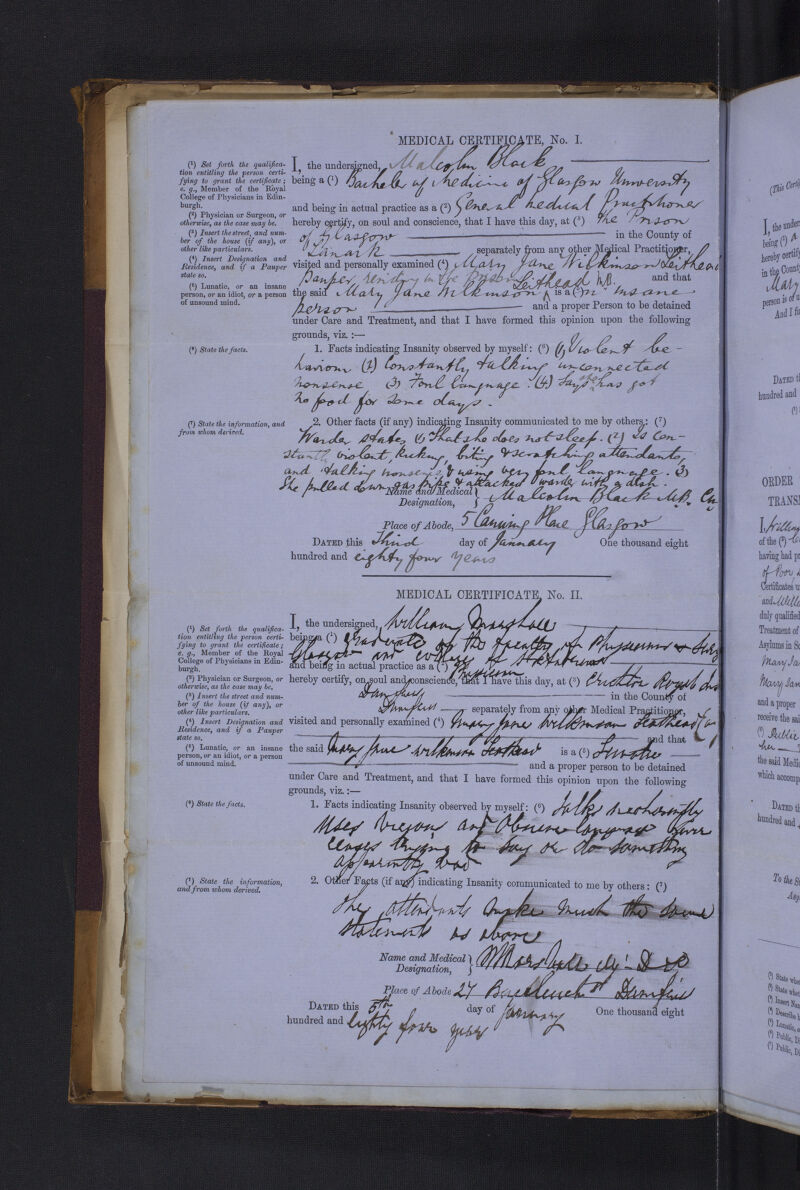 MEDICAL CERTIFICATE, No. I.
(¹) Set forth the qualifica-
tion entitling the person certi-
fying to grant the certificate;
e. g., Member of the Royal
College of Physicians in Edin-
burgh.
(²) Physician or Surgeon, or
otherwise, as the case may be.
(³) Insert the street, and num-
ber of the house (if any), or
other like particulars.
(⁴) Insert Designation and
Residence, and if a Pauper
state so.
(⁵) Lunatic, or an insane
person, or an idiot, or a person
of unsound mind.
I, the undersigned, Malcolm Black
being a (¹) Bachelor of Medicine of Glasgow University
and being in actual practice as a (²) General medical Practitioner
hereby certify, on soul and conscience, that I have this day, at (³) the Prison
of Glasgow in the County of
Lanark separately from any other Medical Practitioner,
visited and personally examined (⁴) Mary Jane Wilkinson Leithead
Pauper residing in the Prison and that
the said Mary Jane Wilkinson Leithead M.B. is a (⁵) n insane
person and a proper Person to be detained
under Care and Treatment, and that I have formed this opinion upon the following
grounds, viz. :—
(⁶) State the facts.
1. Facts indicating Insanity observed by myself: (⁶) (1) Violent be-
haviour (2) Constantly talking unconnected
nonsense (3) Foul language. (4) Says she has got
no food for some days.
(⁷) State the information, and
from whom derived.
2. Other facts (if any) indicating Insanity communicated to me by others: (⁷)
Warder states (1) That she does not sleep. (2) Is con-
stantly violent, kicking, biting & scratching attendants,
and talking nonsense, & using very foul language. (3)
She pulled down gas pipe & attacked warder with a dish.
Name and Medical
Designation, } Malcolm Black M.B. Cm
Place of Abode, 5 Canning Place Glasgow
DATED this Third day of January One thousand eight
hundred and eighty four years
MEDICAL CERTIFICATE, No. II.
(¹) Set forth the qualifica-
tion entitling the person certi-
fying to grant the certificate;
e. g., Member of the Royal
College of Physicians in Edin-
burgh.
(²) Physician or Surgeon, or
otherwise, as the case may be.
(³) Insert the street and num-
ber of the house (if any), or
other like particulars.
(⁴) Insert Designation and
Residence, and if a Pauper
state so.
(⁵) Lunatic, or an insane
person, or an idiot, or a person
of unsound mind.
I, the undersigned, William Marshall
being a (¹) Graduate of the faculty of Physicians & Surg
Glasgow and
and being in actual practice as a (²) Physician
hereby certify, on soul and conscience, that I have this day, at (³) Crichton Royal Ins
Dumfries in the County of
Dumfries separately from any other Medical Practitioner,
visited and personally examined (⁴) Mary Jane Wilkinson Leithead
and that
the said Mary Jane Wilkinson Leithead is a (⁵) Lunatic
and a proper person to be detained
under Care and Treatment, and that I have formed this opinion upon the following
grounds, viz. :—
(⁶) State the facts.
1. Facts indicating Insanity observed by myself: (⁶) Talks incoherently
Uses and Obscene language never
ceases trying to say or do something
apparently bad
(⁷) State the information,
and from whom derived.
2. Other Facts (if any) indicating Insanity communicated to me by others: (⁷)
The attendants make much the same
statements as above
Name and Medical
Designation, } W Marshall
Place of Abode 27 Buccleuch St Dumfries
DATED this 5th day of January One thousand eight
hundred and Eighty four years
I, the under
being (¹) A
hereby certify
in the Count
Mary
person is of u
And I fu
DATED t
hundred and
ORDER
TRANS
of the (²)
having had p
of Poor
Certificates u
duly qualified
Treatment of
Asylums in Sc
Mary Ja
Mary Jan
and a proper
receive the sai
the said Medi
which accomp
DATED t
hundred and
To the S
(²) State whet
(³) Insert Nam
(⁴) Describe h
(⁵) Lunatic, o
(⁶) Public, Di
(⁷) Public, Di